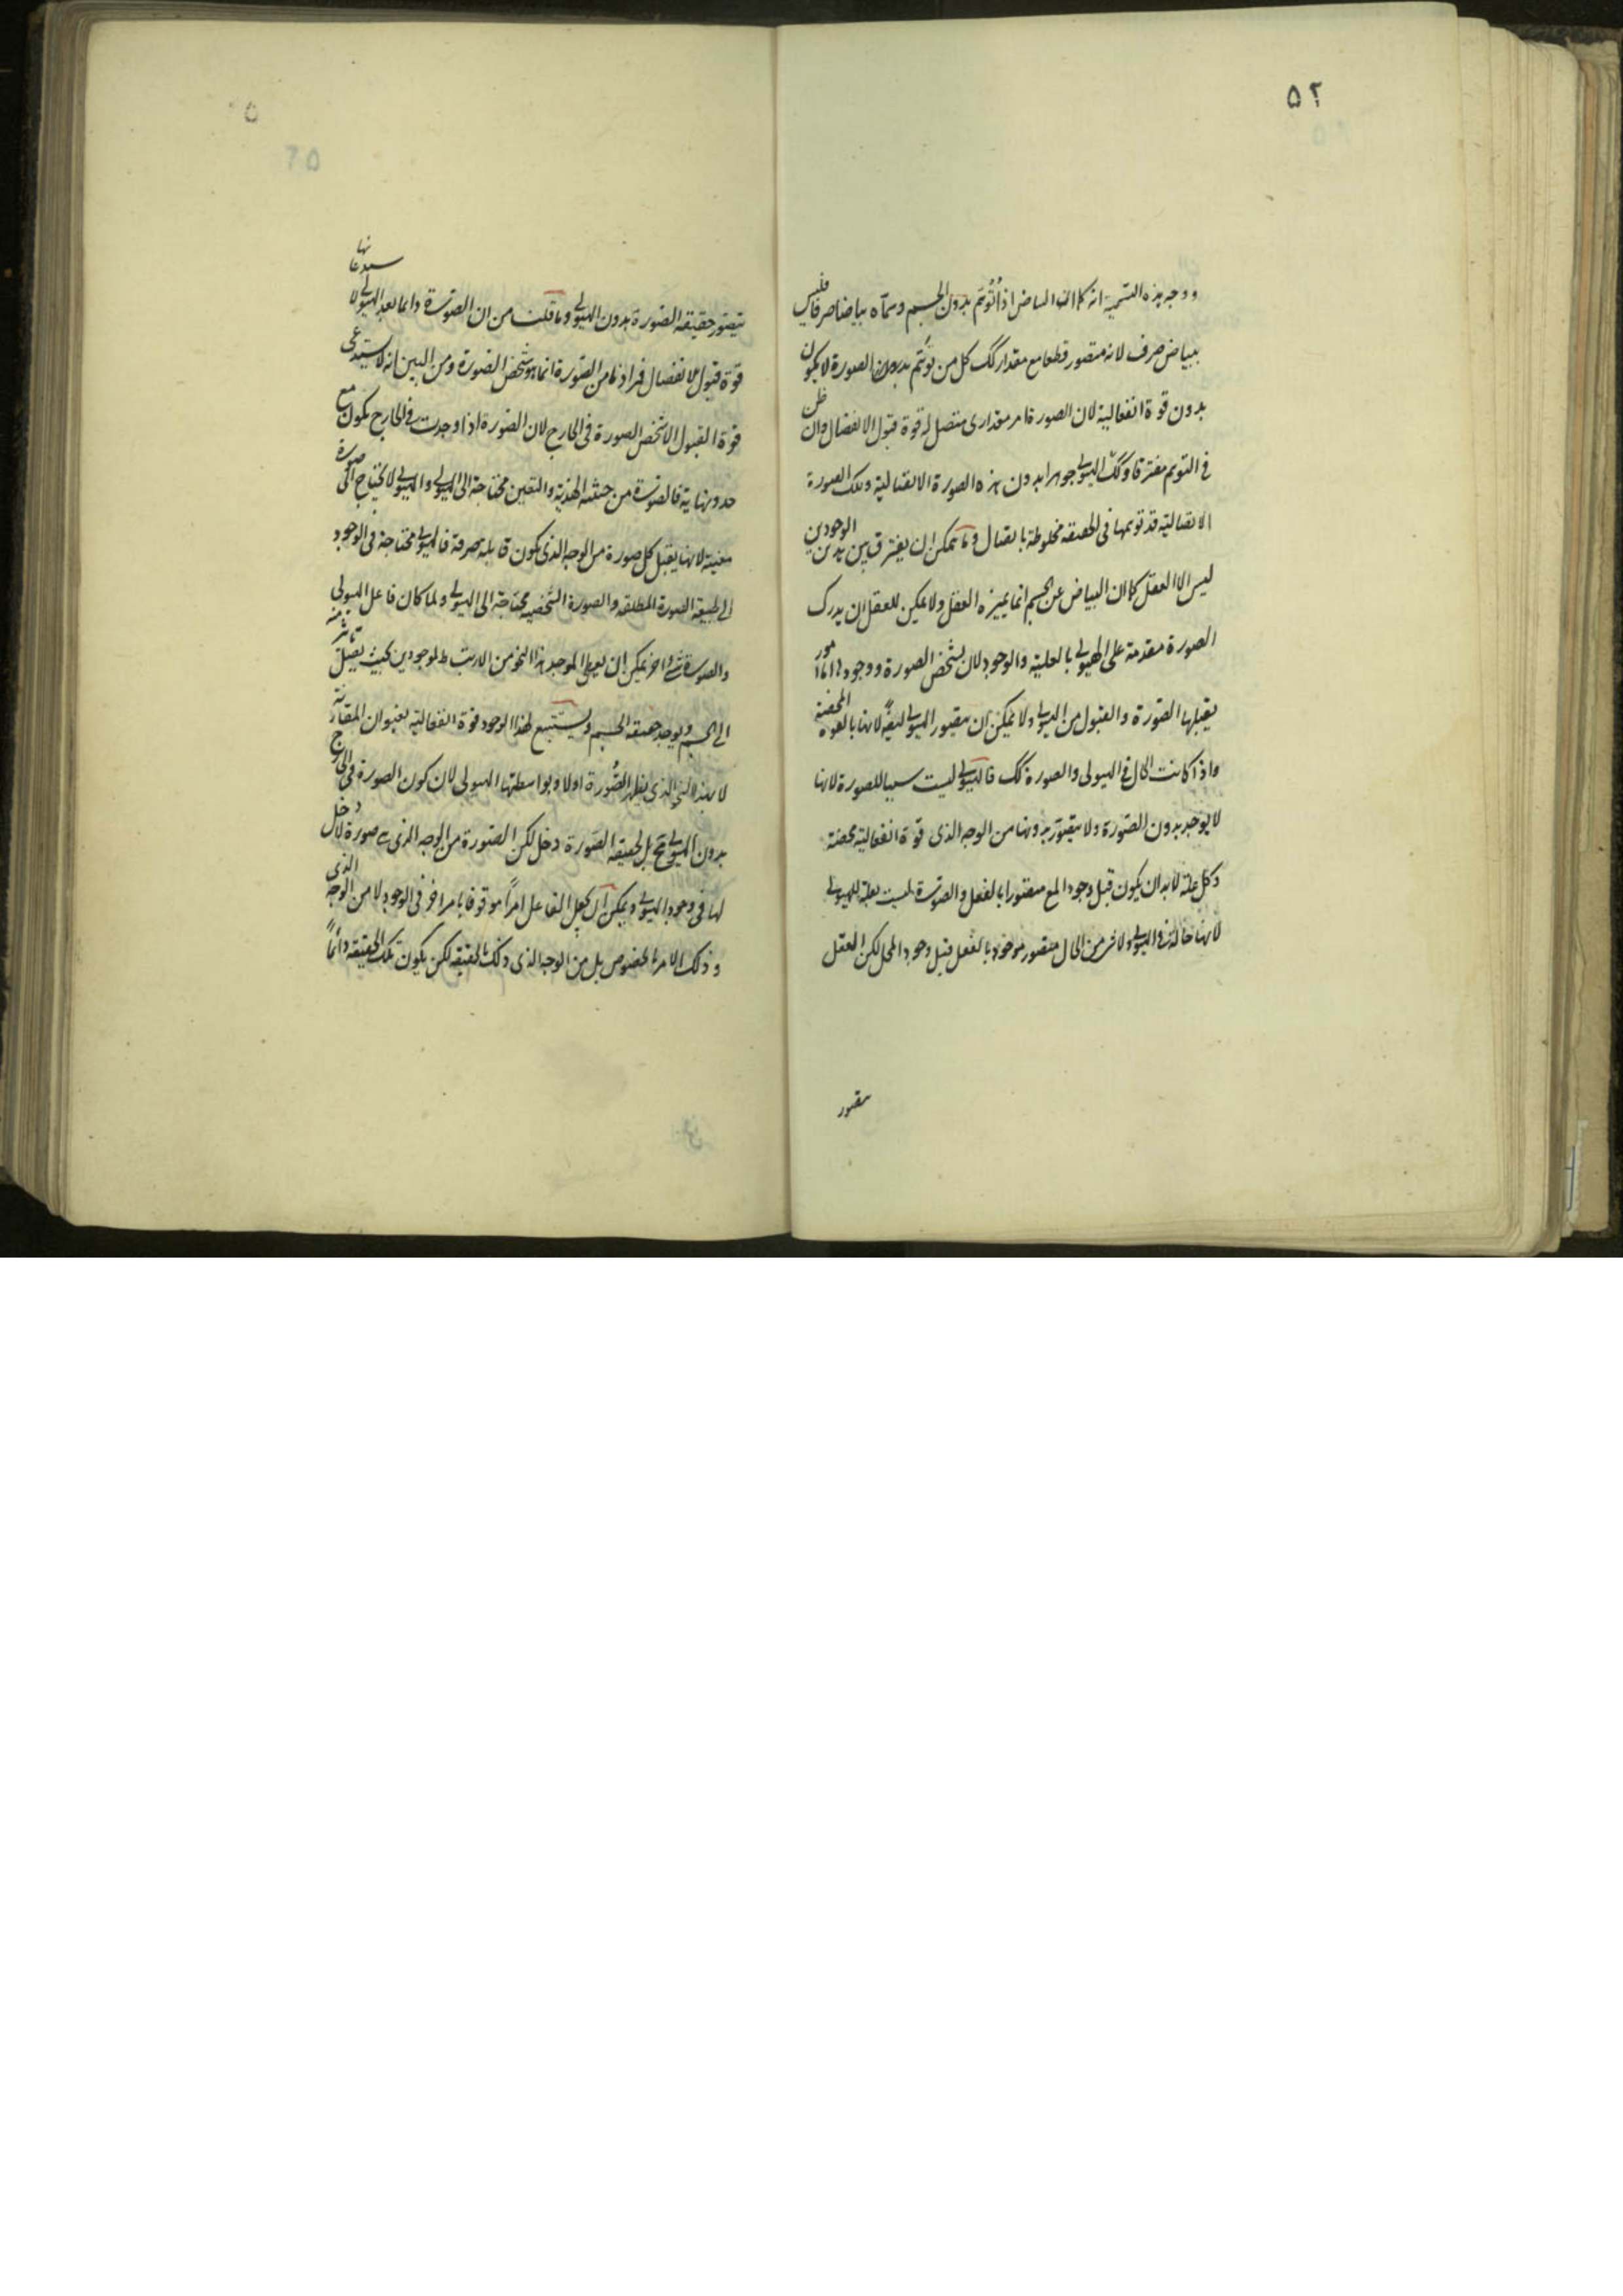 ۵۲
ووجه هذه التسمية انه كما ان البياض اذا تُوُهّم بدون الجسم وسمّاه بياضا صرفا فليس
ببياض صرف لانه متصور قطعا مع مقدار كك كل من توهّم بدون الصورة لا يكون
بدون قوة انفعالية لان الصورة امر مقدارى متصل له قوة قبول الانفصال وان ظن
فى التوهم مفترقا وكك الهيولى جوهرا بدون هذه الصورة الاتصالية وتلك الصورة
الاتصالية قد توهمها فى الحقيقه مخلوطة باتصال وما يمكن ان يفترق بين هذين الوجودين
ليس الا العقل كما ان البياض عن الجسم انما يميزه العقل ولا يمكن للعقل ان يدرك
الصورة مقدمة على الهيولى بالعلية والوجود لان تشخص الصورة ووجودها امور
يقبلها الصورة والقبول من الهيولى ولا يمكن ان يتصور الهيولى ايضًا لانها بالقوه المحضة
واذا كانت الحال فى الهيولى والصورة كك فالهيولى ليست سببا للصورة لانها
لا يوجد بدون الصورة ولا يتصور بدونها من الوجه الذى قوة انفعالية محضة
وكل علة لا بد ان يكون قبل وجود المع متصورا بالفعل والصورة ليست بعلة للهيولى
لانها حالّة فى الهيولى ولا شئ من الحال متصور موجود بالفعل قبل وجود المحل لكن العقل
يتصور
يتصور حقيقه الصورة بدون الهيولى وما قلنا من ان الصورة دائما بعد الهيولى لا ستدعائها
قوة قبول الانفصال فمرادنا من الصورة انما هو شخص الصورة ومن البين انه لا يستدعى
قوة القبول الا شخص الصورة فى الخارج لان الصورة اذا وجدت فى الخارج يكون مع
حد ونهاية فالصورة من حيثيه الهذية والتعين محتاجة الى الهيولى والهيولى لا يحتاج الى صورة
معينة لانها يقبل كل صورة من الوجه الذى يكون قابلة صرفة فالهيولى محتاجة فى الوجود
الى طبيعة الصورة المطلقه والصورة الشخصيه محتاجة الى الهيولى ولما كان فاعل الهيولى
والصورة شئ واخر يمكن ان يعطى الموجد هذا النحو من الارتباط لموجودين بحيث يصل تاثر منه
الى الجسم ويوجد حقيقه الجسم ويستتبع لهذا الوجود قوة انفعالية بعنوان المقارنة
لا بهذا النحو الذى يظهر الصُّورة اولا وبواسطتها الهيولى لان كون الصورة فى الخارج
بدون الهيولى مح بل لحقيقه الصورة دخل لكن الصورة من الوجه الذى هى صورة لا دخل
لها فى وجود الهيولى ويمكن ان يجعل الفاعل امرًا موقوفا بامر اخر فى الوجود لا من الوجه الذى
وذلك الامر المخصوص بل من الوجه الذى ذلك الحقيقه لكن يكون تلك الحقيقه دائمًا